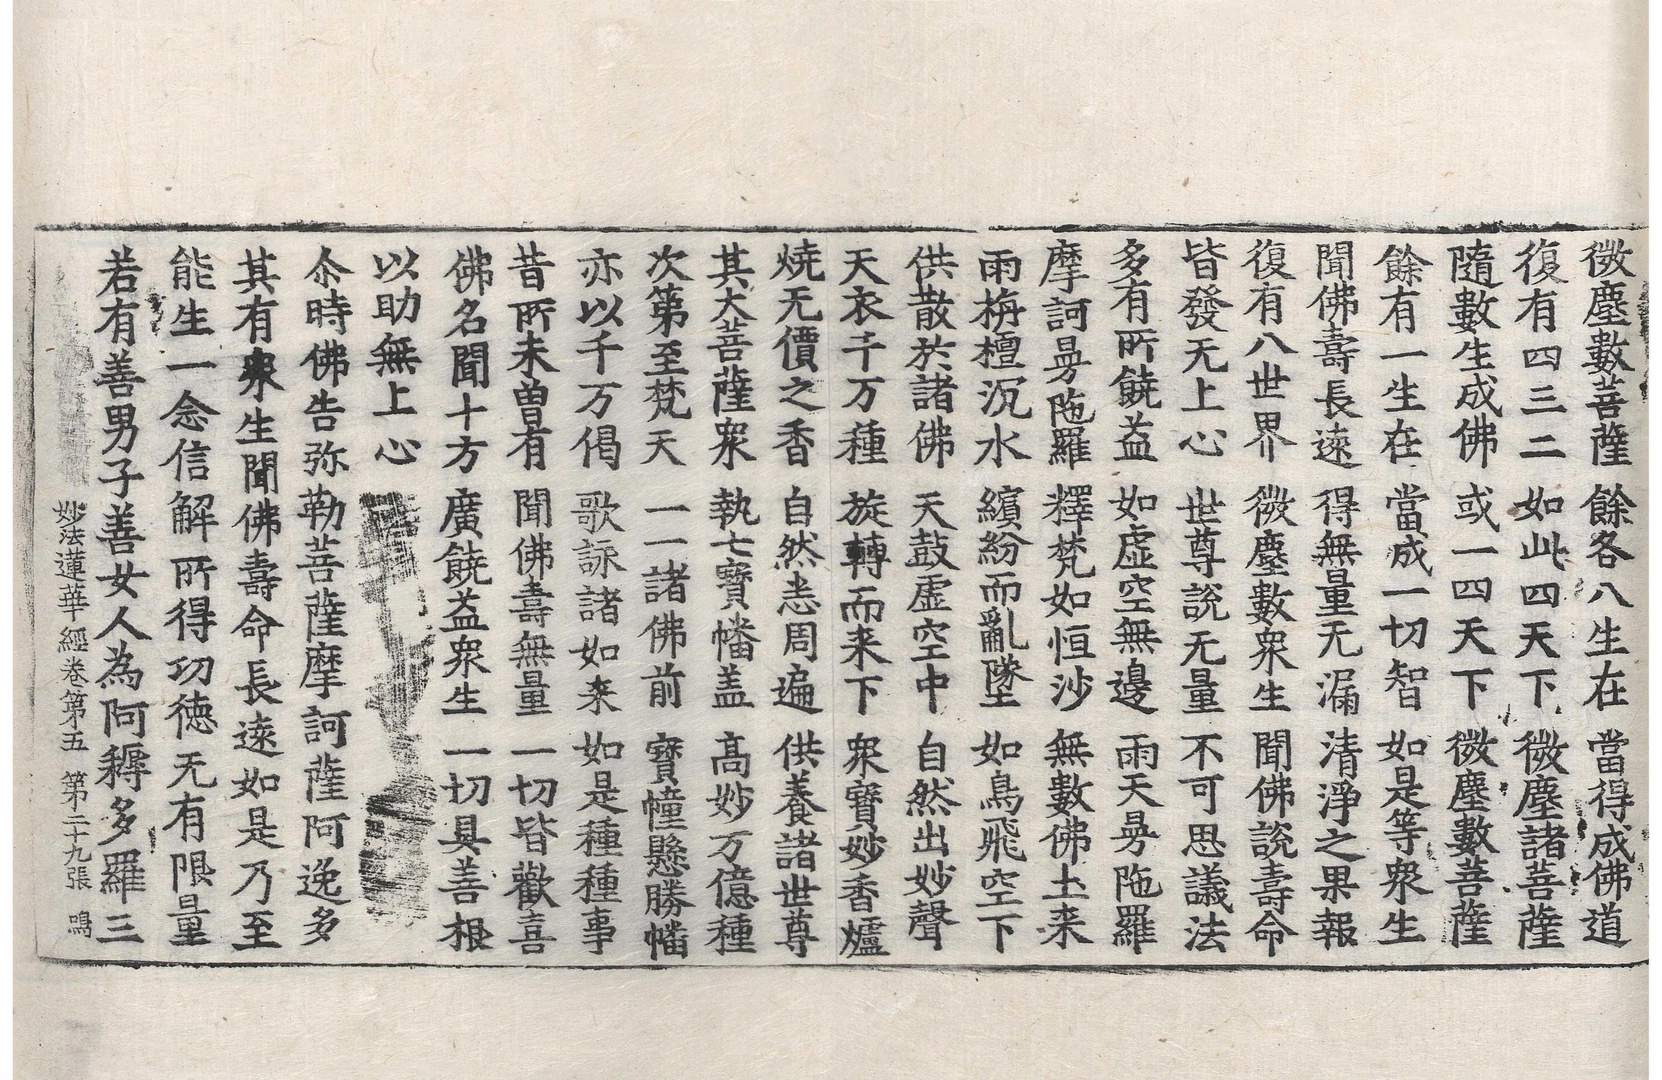 微塵數菩薩 餘各八生在 當得成佛道
復有四三二 如此四天下 微塵諸菩薩
隨數生成佛 或一四天下 微塵數菩薩
餘有一生在 當成一切智 如是等衆生
聞佛壽長遠 得無量无漏 清淨之果報
復有八世界 微塵數衆生 聞佛説壽命
皆發无上心 世尊説无量 不可思議法
多有所饒益 如虛空無邊 雨天曼陁羅
摩訶曼陁羅 釋梵如恒沙 無數佛土来
雨栴檀沉水 繽紛而亂墜 如鳥飛空下
供散於諸佛 天鼓虛空中 自然出妙聲
天衣千万種 旋轉而来下 衆寶妙香爐
燒无價之香 自然悉周遍 供養諸世尊
其大菩薩衆 執七寶幡盖 高妙万億種
次第至梵天 一一諸佛前 寶幢懸勝幡
亦以千万偈 歌詠諸如来 如是種種事
昔所未曽有 聞佛壽無量 一切皆歡喜
佛名聞十方 廣饒益衆生 一切具善根
以助無上心
尒時佛告弥勒菩薩摩訶薩阿逸多
其有衆生聞佛壽命長遠如是乃至
能生一念信解所得功徳无有限量
若有善男子善女人為阿耨多羅三
妙法蓮華經卷第五 第二十九張 鳴